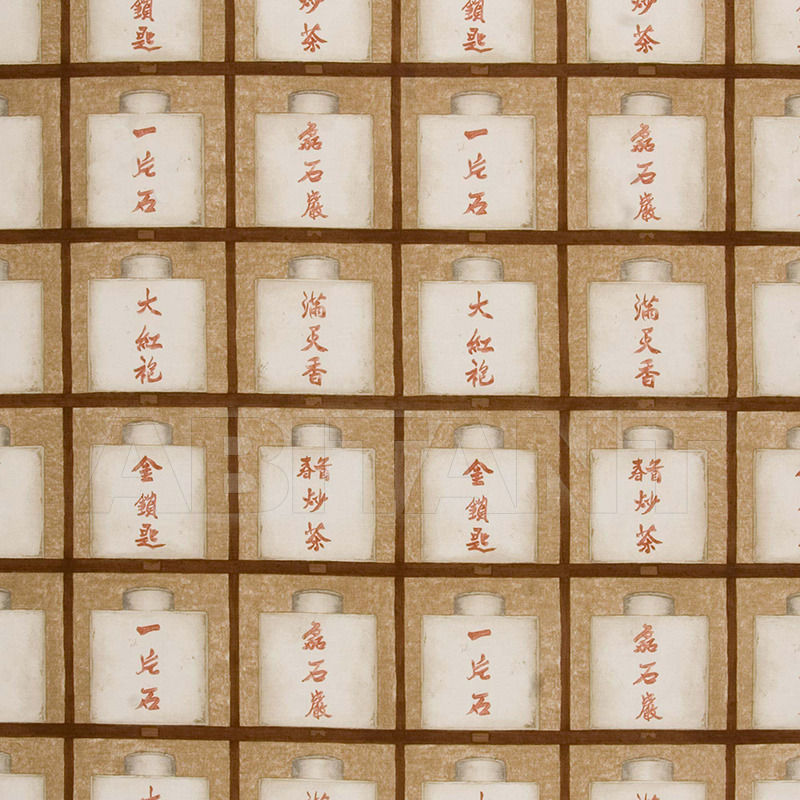 鎖匙
炒茶
鎖匙
炒茶
一片石
石巖
一片石
石巖
大紅袍
滿天香
大紅袍
滿天香
金鎖匙
炒茶
金鎖匙
炒茶
一片石
石巖
一片石
石巖
大
滿
大
滿
ABITANT